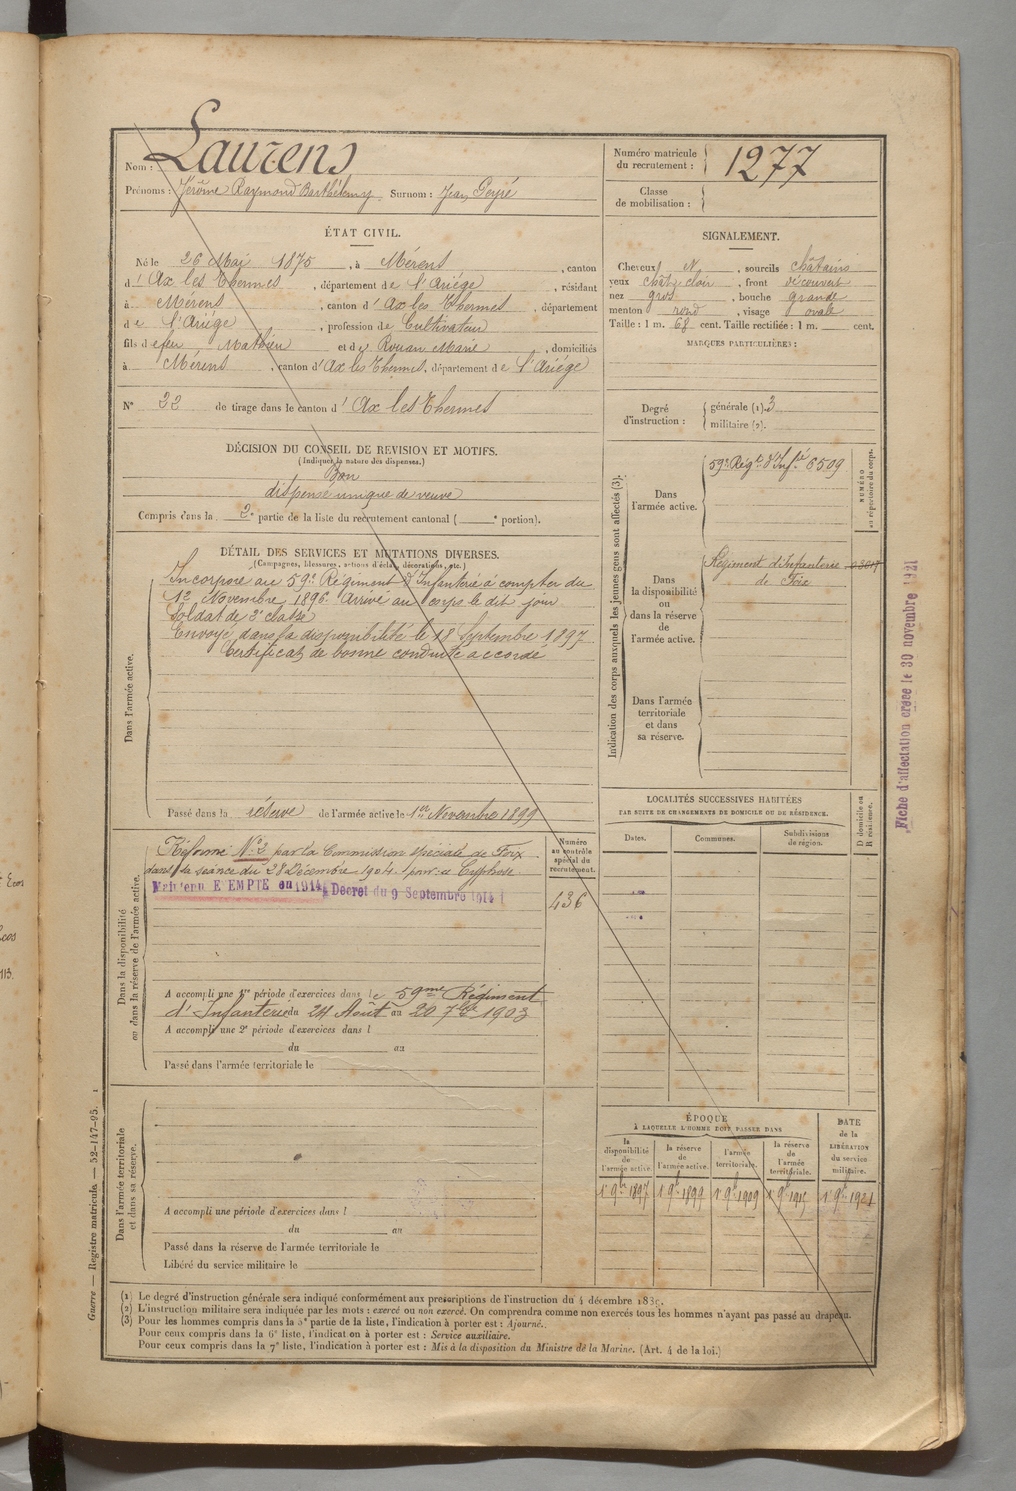 Nom : Laurens
Prénoms : Jérôme Raymond Barthélemy Surnom : Jean Peyré
Numéro matricule du recrutement : 1277
Classe de mobilisation :
ÉTAT CIVIL.
Né le 26 Mai 1875, à Mérens, canton
d' Ax les Thermes, département de l'Ariége, résidant
à Mérens, canton d' Ax les Thermes, département
de l'Ariége, profession de Cultivateur
fils de feu Mathieu et de Rouan Marie, domiciliés
à Mérens, canton d' Ax les Thermes, département de l'Ariége
N° 22 de tirage dans le canton d' Ax les Thermes
SIGNALEMENT.
Cheveux N, sourcils châtains
yeux chât clair, front découvert
nez gros, bouche grande
menton rond, visage ovale
Taille : 1 m. 68 cent. Taille rectifiée : 1 m. cent.
MARQUES PARTICULIÈRES :
Degré d'instruction :
générale (1). 3
militaire (2).
DÉCISION DU CONSEIL DE REVISION ET MOTIFS.
(Indiquer la nature des dispenses.)
Bon
dispensé unique de veuve
Compris dans la 2e partie de la liste du recrutement cantonal ( e portion).
DÉTAIL DES SERVICES ET MUTATIONS DIVERSES.
(Campagnes, blessures, actions d'éclat, décorations, etc.)
Dans l'armée active.
Incorporé au 59e Régiment d'Infanterie à compter du
12 Novembre 1896. Arrivé au corps le dit jour
Soldat de 2e classe
Envoyé dans la disponibilité le 18 Septembre 1897
Certificat de bonne conduite accordé
Passé dans la réserve de l'armée active le 1er Novembre 1899
Indication des corps auxquels les jeunes gens sont affectés (3).
NUMÉRO au répertoire du corps.
Dans l'armée active.
59e Régt d'Infie 6509
Dans la disponibilité ou dans la réserve de l'armée active.
Régiment d'Infanterie
de Foix
Dans l'armée territoriale et dans sa réserve.
Fiche d'affectation créée le 30 novembre 1921
Dans la disponibilité ou dans la réserve de l'armée active.
Réformé N° 2 par la Commission spéciale de Foix
dans sa séance du 28 Décembre 1904 pour Cyphose
Maintenu EXEMPTE en 1914, Décret du 9 Septembre 1914
Numéro au contrôle spécial du recrutement.
436
A accompli une 1re période d'exercices dans le 59me Régiment
d'Infanterie du 24 Août au 20 7bre 1903
A accompli une 2e période d'exercices dans l
du au
Passé dans l'armée territoriale le
LOCALITÉS SUCCESSIVES HABITÉES
PAR SUITE DE CHANGEMENTS DE DOMICILE OU DE RÉSIDENCE.
Dates.
Communes.
Subdivisions de région.
D domicile ou R résidence.
Dans l'armée territoriale et dans sa réserve.
A accompli une période d'exercices dans l
du au
Passé dans la réserve de l'armée territoriale le
Libéré du service militaire le
ÉPOQUE
À LAQUELLE L'HOMME DOIT PASSER DANS
la disponibilité de l'armée active.
la réserve de l'armée active.
l'armée territoriale.
la réserve de l'armée territoriale.
DATE de la LIBÉRATION du service militaire.
1er 9bre 1897 1er 9bre 1899 1er 9bre 1909 1er 9bre 1915 1er 9bre 1921
Guerre — Registre matricule. — 52-147-95.
(1) Le degré d'instruction générale sera indiqué conformément aux prescriptions de l'instruction du 4 décembre 1889.
(2) L'instruction militaire sera indiquée par les mots : exercé ou non exercé. On comprendra comme non exercés tous les hommes n'ayant pas passé au drapeau.
(3) Pour les hommes compris dans la 5e partie de la liste, l'indication à porter est : Ajourné.
Pour ceux compris dans la 6e liste, l'indication à porter est : Service auxiliaire.
Pour ceux compris dans la 7e liste, l'indication à porter est : Mis à la disposition du Ministre de la Marine. (Art. 4 de la loi.)